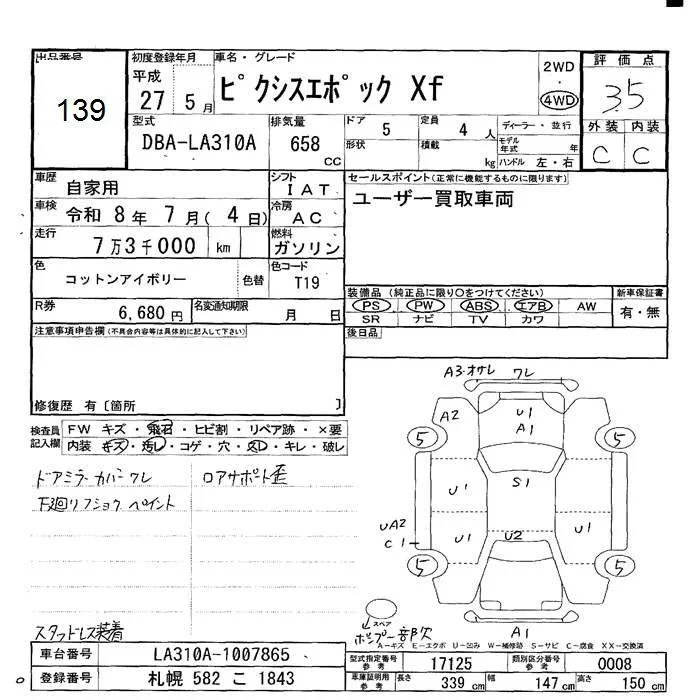 出品番号
139
初度登録年月
平成
27 5月
車名・グレード
ピクシスエポック Xf
2WD
・
4WD
評価点
3.5
外装 内装
C C
型式
DBA-LA310A
排気量
658
CC
ドア
5
定員
4 人
形状
積載
kg
ディーラー・並行
モデル年式
年
ハンドル 左・右
車歴
自家用
シフト
IAT
車検
令和 8年 7月(4日)
冷房
AC
走行
7万3千000 km
燃料
ガソリン
色
コットンアイボリー
色替
色コード
T19
R券
6,680円
名変通知期限
月 日
セールスポイント(正常に機能するものに限ります)
ユーザー買取車両
装備品(純正品に限り○をつけてください)
新車保証書
PS PW ABS エアB AW
SR ナビ TV カワ
有・無
後日品
注意事項申告欄(不具合内容等は具体的に記入して下さい)
修復歴 有〔箇所 〕
検査員
記入欄
FW キズ・飛石・ヒビ割・リペア跡・×要
内装 キズ・汚レ・コゲ・穴・スレ・キレ・破レ
ドアミラーカバーワレ
ロアサポート歪
下廻りフショクペイント
スタッドレス装着
A3・オサレ ワレ
A2
U1
A1
5
5
S1
U1
U1
UA2
C1
U1
U2
5
5
A1
スペア
部欠
A-キズ E-エクボ U-凹み W-補修跡 S-サビ C-腐食 XX-交換済
車台番号
LA310A-1007865
型式指定番号
参考
17125
類別区分番号
参考
0008
登録番号
札幌 582 こ 1843
車庫証明用
参考
長さ
339 cm
幅
147 cm
高さ
150 cm